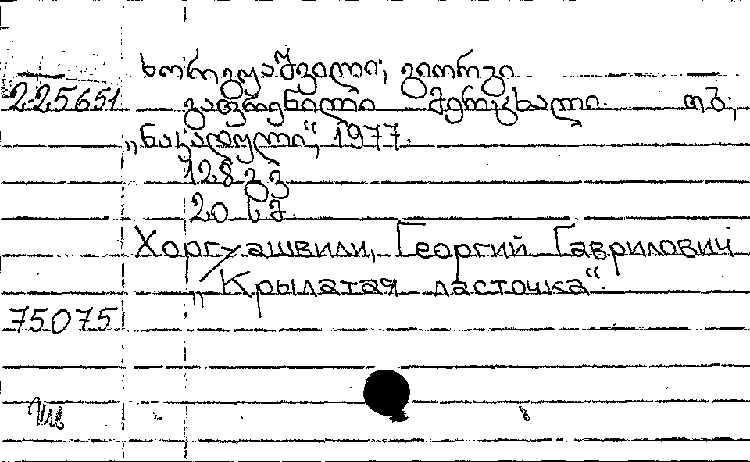 ხორგუაშვილი, გიორგი
225651 გაფრენილი მერცხალი. თბ.,
„ნაკადული“, 1977.
128 გვ
20 სმ.
Хоргуашвили, Георгий Гаврилович
„Крылатая ласточка“.
75075